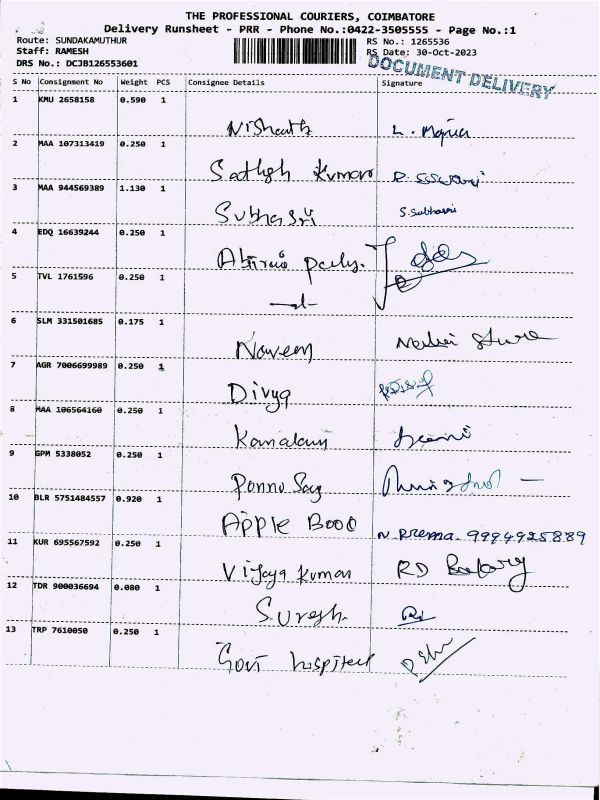 THE PROFESSIONAL COURIERS, COIMBATORE
Delivery Runsheet - PRR - Phone No.:0422-3505555 - Page No.:1
Route: SUNDAKAMUTHUR
RS No.: 1265536
Staff: RAMESH
RS Date: 30-Oct-2023
DRS No.: DCJB126553601
DOCUMENT DELIVERY
S No Consignment No Weight PCS Consignee Details Signature
1 KMU 2658158 0.590 1
Nishanth L.
2 MAA 107313419 0.250 1
Sathish Kumar
3 MAA 944569389 1.130 1
Subhasri S. Subhasri
4 EDQ 16639244 0.250 1
5 TVL 1761596 0.250 1
6 SLM 331501685 0.175 1
Naveen Store
7 AGR 7006699989 0.250 1
Divya
8 MAA 106564160 0.250 1
Kamalam
9 GPM 5338052 0.250 1
Ponnu
10 BLR 5751484557 0.920 1
Apple Book N. Prema. 9994925889
11 KUR 695567592 0.250 1
Vijaya Kumar RD Bakery
12 TDR 900036694 0.080 1
Suresh
13 TRP 7610050 0.250 1
Govt hospital